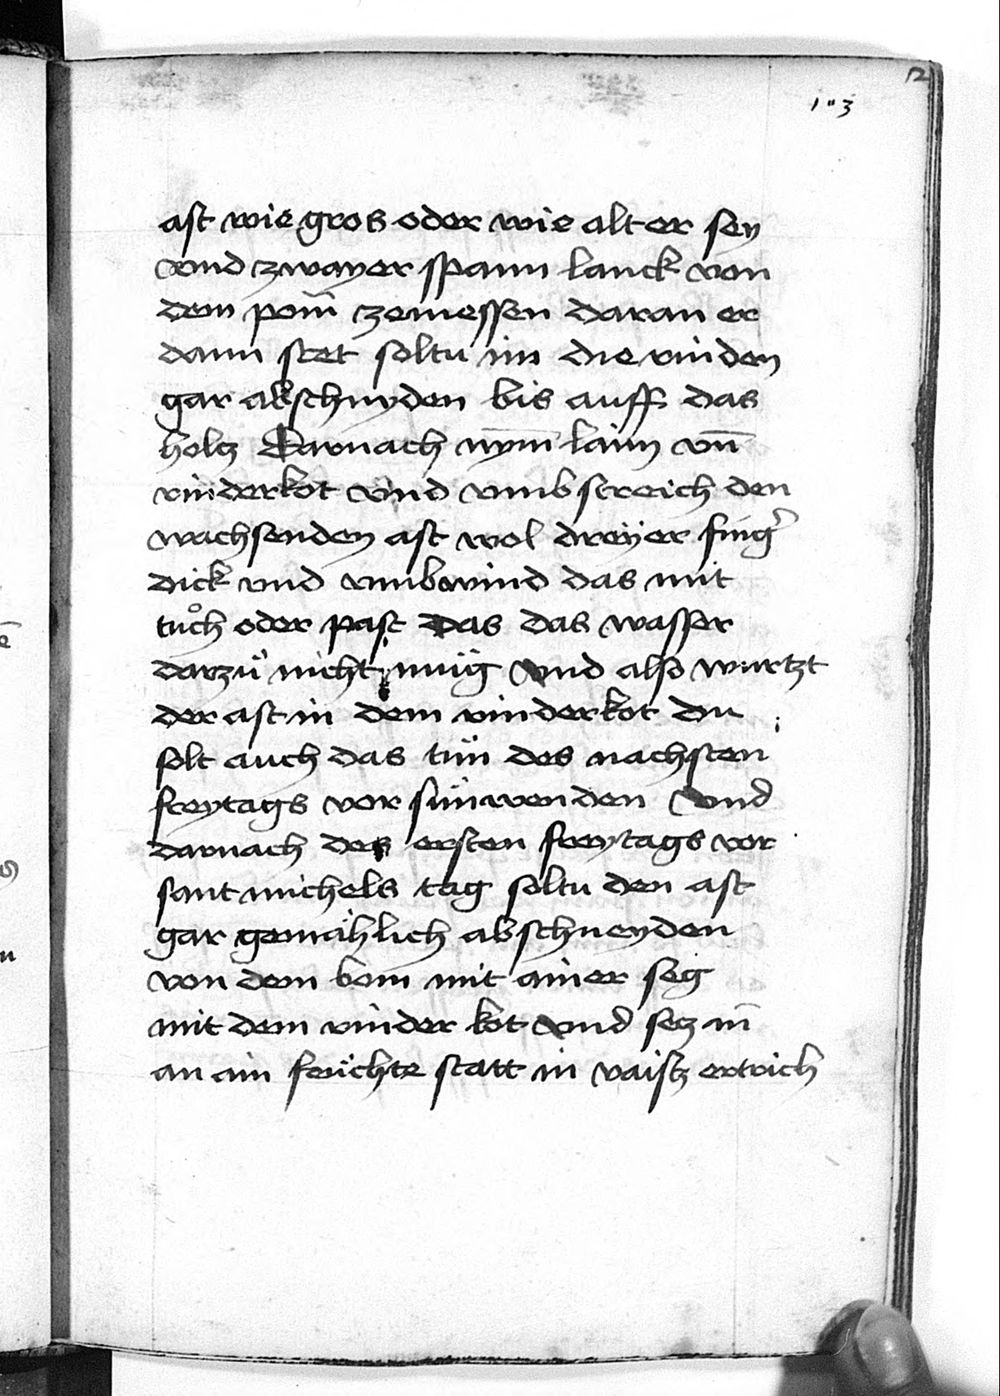 12
1"3
ast wie gros oder wie alt er sey
vnd zwayer spann lanck von
dem pom̄ zemessen daran er
dann stet soltu im die rinden
gar abschnyden bis auff das
holtz Darnach nym̄ laim vn̄
rinderkot vnd vmbstreich den
wachsenden ast wol dreÿer fing̉
dick vnd vmbwind das mit
tuͦch oder past Das das wasser
darzü nicht müg Vnd also wurtzt
der ast in dem rinderkot Du
solt auch das tün des nachsten
freytags vor sünwenden Vnd
darnach des ersten freytags vor
sant michels tag soltu den ast
gar gemählich abschneyden
von dem bom mit ainer seg
mit dem rinder kot vnd setz in̄
an ain feüchte statt in vaistz ertrich